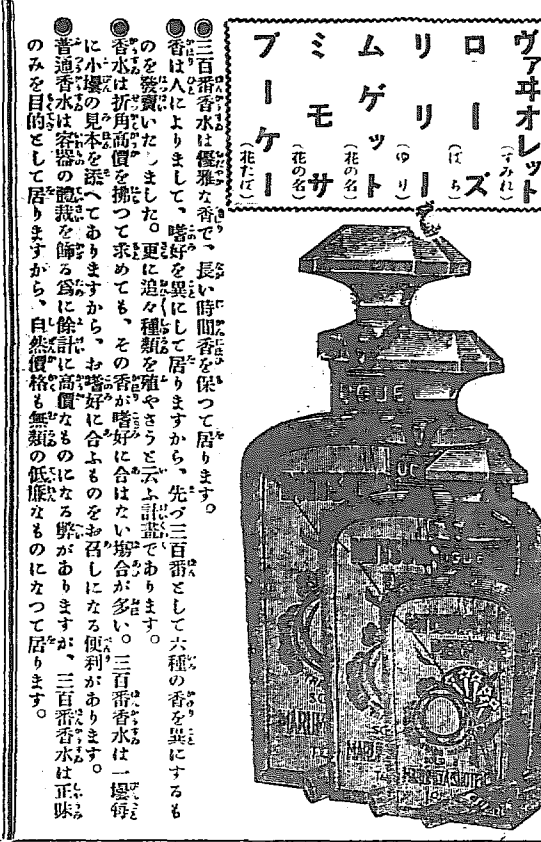 ヴァヰオレット（すみれ）
ローズ（ばら）
リリー（ゆり）
ムゲット（花の名）
ミモサ（花の名）
ブーケー（花たば）
●三百番香水は優雅な香で、長い時間香を保つて居ります。
●香は人によりまして、嗜好を異にして居りますから、先づ三百番として六種の香を異にするも
のを發賣いたしました。更に追々種類を殖やさうと云ふ計畫であります。
●香水は折角高價を拂つて求めても、その香が嗜好に合はない場合が多い。三百番香水は一壜毎
に小壜の見本を添へてありますから、お嗜好に合ふものをお召しになる便利があります。
●普通香水は容器の體裁を飾る爲に餘計に高價なものになる弊がありますが、三百番香水は正味
のみを目的として居りますから、自然價格も無類の低廉なものになつて居ります。